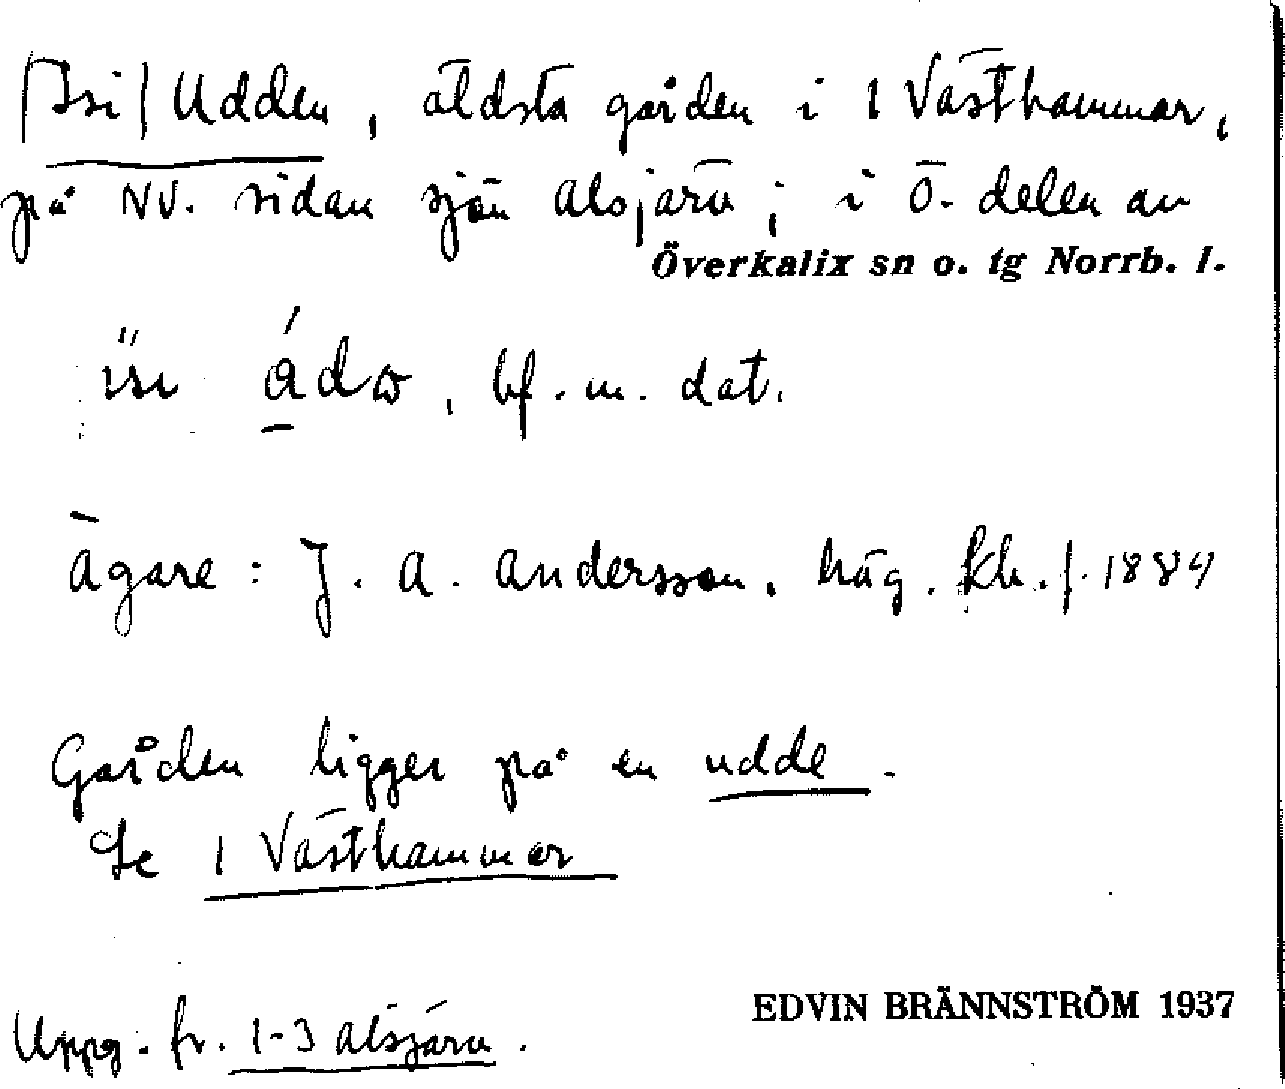 [Isi] Udden, äldsta gården i 1 Västhammar,
på NV. sidan sjön Alsjärv; i Ö. delen av
Överkalix sn o. tg Norrb. l.
isi ádω, bf. m. dat.
Ägare: J. A. Andersson. häg. f. 1884
Gården ligger på en udde.
Se 1 Västhammar
Uppg. fr. 1-3 Alsjärv.
EDVIN BRÄNNSTRÖM 1937